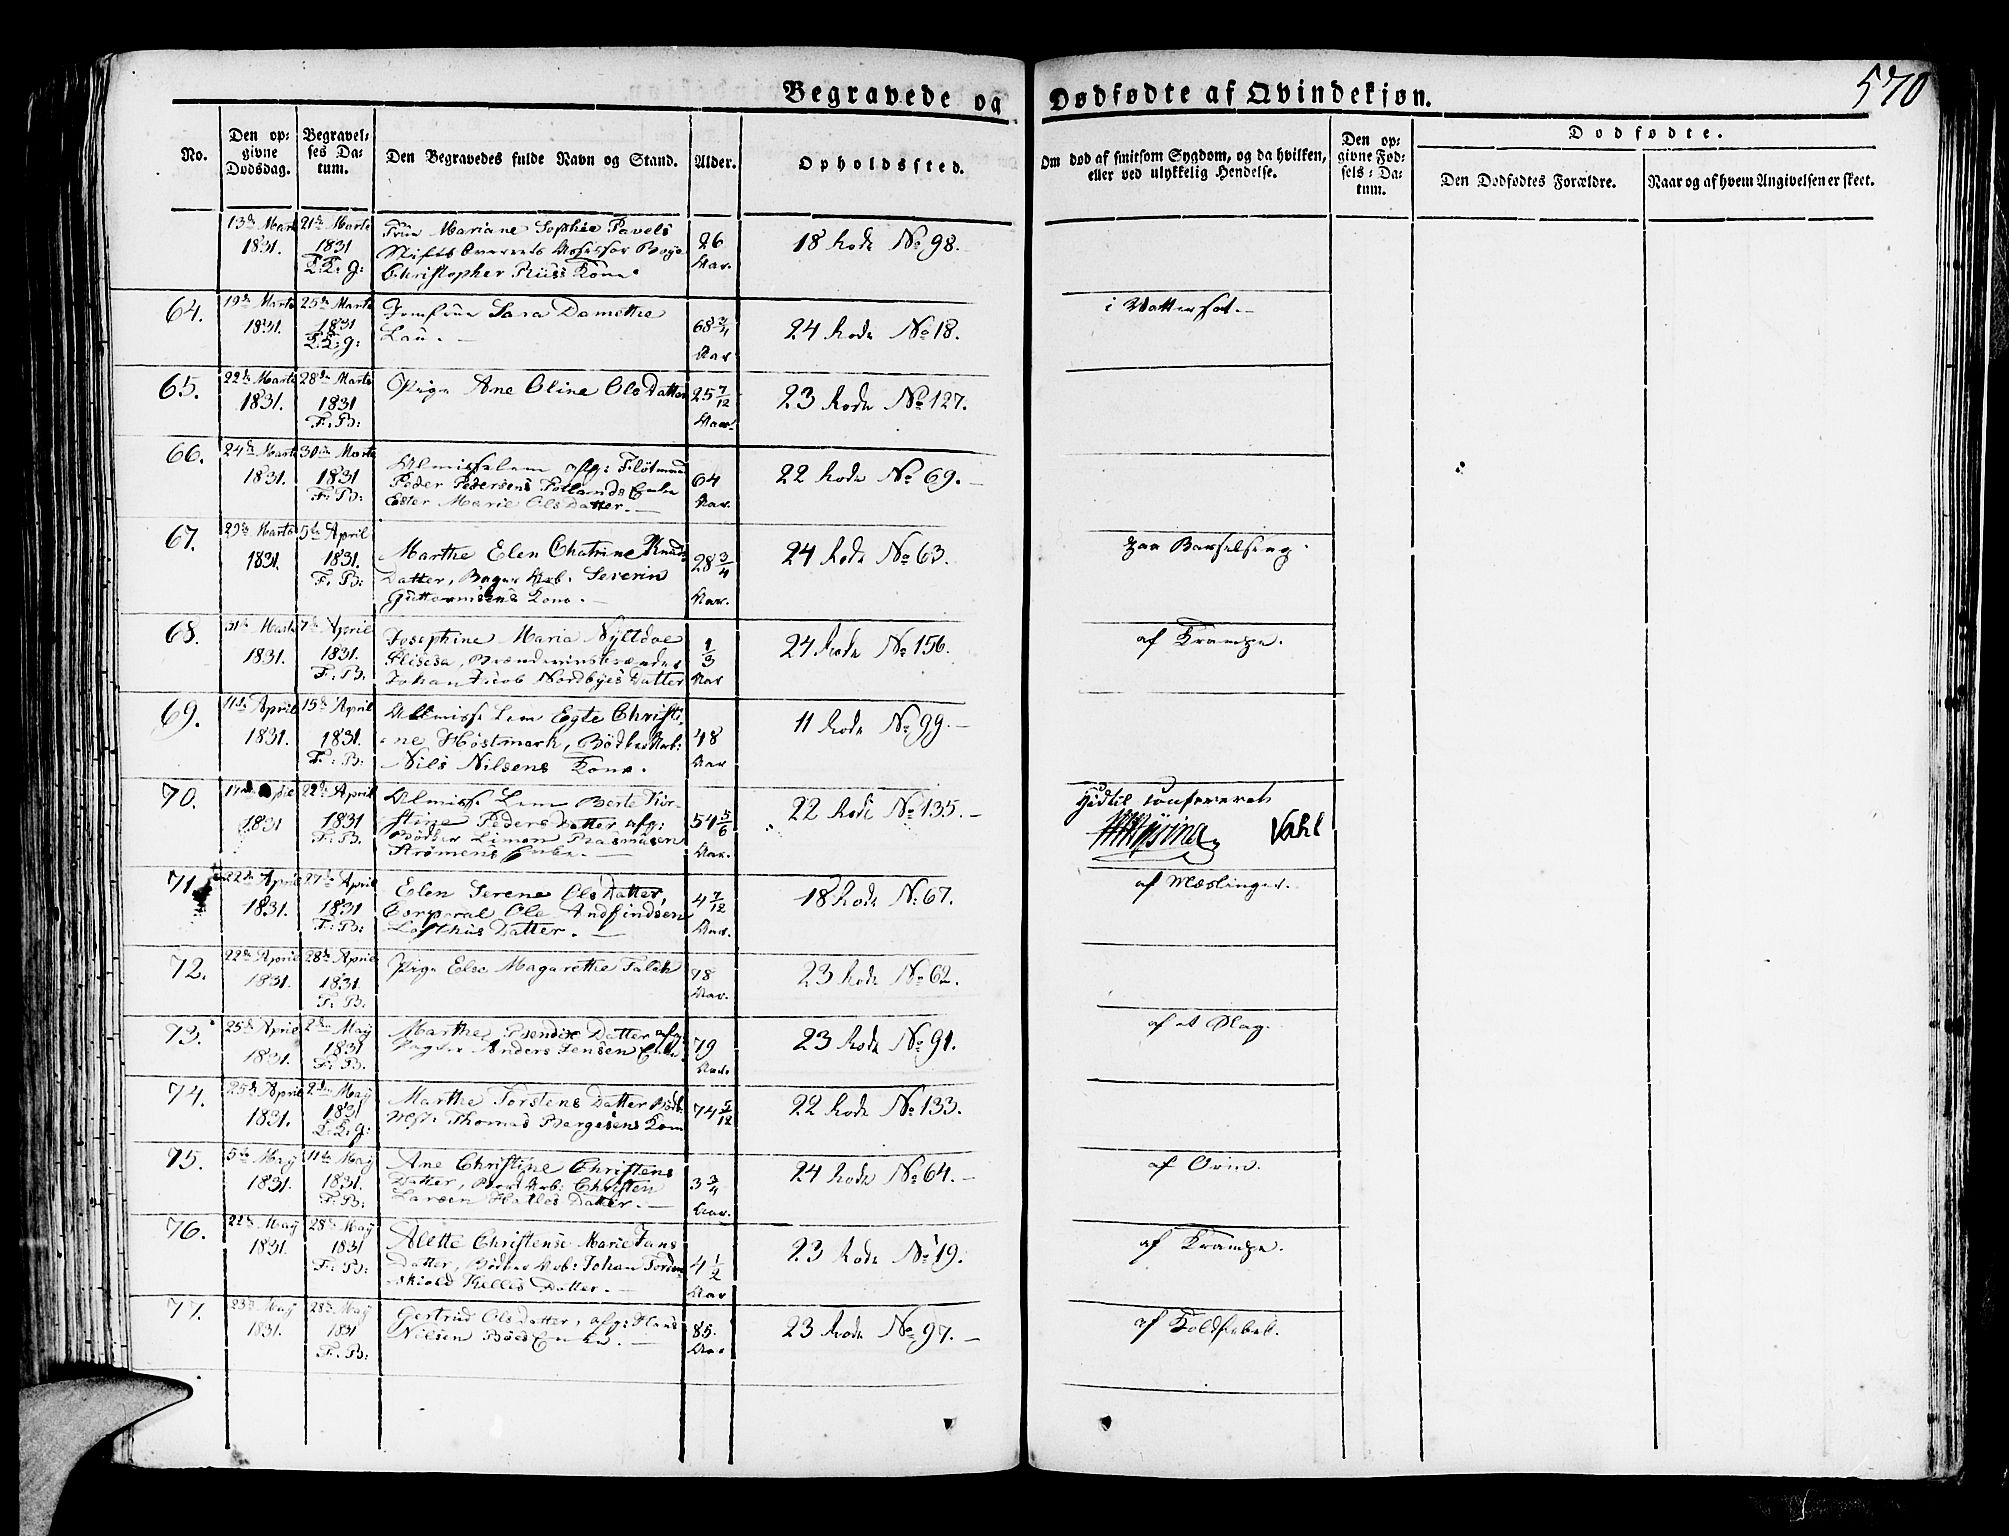 570
Begravede og Dødfødte af Qvindekjøn.
No.
Den opgivne Dødsdag.
Begravelses Datum.
Den Begravedes fulde Navn og Stand.
Alder.
Opholdssted.
Om død af smitsom Sygdom, og da hvilken, eller ved ulykkelig Hendelse.
Den opgivne Fødsels-Datum.
Dødfødte.
Den Dødfødtes Forældre.
Naar og af hvem Angivelsen er skeet.
13de Marts 1831. 21de Marts 1831 Frue Mariane Sophie Pavels
Stifts Overrets Assessor
Christopher Kone 26 Aar. 18 Rode No 98.
64. 19de Marts 1831. 25de Marts 1831 Jomfrue Sara Damethe
Lau. 68 3/4 Aar 24 Rode No 18. i Vattersot.
65. 22de Marts 1831. 28de Marts 1831 F. B: Pige Ane Oline Olsdatter 25 7/12 Aar. 23 Rode No 127.
66. 24de Marts 1831. 30te Marts 1831 F. B: Almisselem afg: Flötmand
Peder Pedersens Enke
Ester Marie Olsdatter. 64 Aar. 22 Rode No 69.
67. 29de Marts 1831. 5te April 1831. F. B: Marthe Elen Chatrine Knuds
Datter, Bager Arb: Severin
Guttormsens Kone. 28 3/4 Aar. 24 Rode No 63. paa Barselseng.
68. 31te Marts 1831. 7de April 1831. F. B. Josephine Maria
Elisesa, Brændeviinsbrænder
Johan Jacob Nordbyes Datter 1/3 Aar 24 Rode No 156. af Krampe.
69. 11te April 1831. 15de April 1831. F. B. Allmisse Lem Egte Christi-
ne Höstmark, Bödker Arb:
Nils Nilsens Kone. 48 Aar 11 Rode No 99.
70. 17de April 1831 22de April 1831 F. B. Almisse Lem Berte Kir-
stine Pedersdatter afg:
Bödker Simon Rasmusen
Strömens Enke. 54 5/6 Aar. 22 Rode No 135. Hidtil confereret
Vahl
71. 22de April 1831. 27de April 1831 F. B: Elen Serene Olsdatter,
Corporal Ole Andfindsen
Lofthus Datter. 4 7/12 Aar. 18 Rode No 67. af Mæslinger.
72. 22de April 1831. 28de April 1831. F. B. Pige Else Magarethe Falch 78 Aar. 23 Rode No 62.
73. 25de April 1831. 2den May 1831 F. B. Marthe Bendix Datter afg:
Anders Jensen Enke 79 Aar. 23 Rode No 91. af et Slag.
74. 25de April 1831. 2den May 1831 Marthe Torstens Datter
Thomas Børgesens Kone 74 5/12 22 Rode No 133.
75. 5te May 1831. 11te May 1831. F. B: Ane Christine Christens
Datter, Arb: Christen
Larsen Datter. 3 3/4 Aar. 24 Rode No 64.
76. 22de May 1831. 28de May 1831 F. B: Alette Christense Marie Jans
Datter, Bödker Arb: Johan Torden-
skiold Kelles Datter. 4 1/2 Aar 23 Rode No 19. af Krampe.
77. 23de May 1831. 28de May 1831 F. B: Gertrud Olsdatter, afg: Hans
Nilsen Enke. 85. Aar 23 Rode No 97. af Koldfeber.